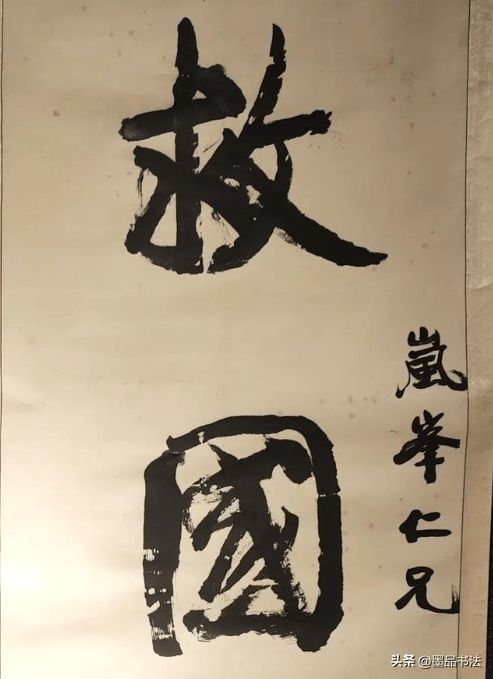 嵐峯仁兄
救國
头条 @墨品书法